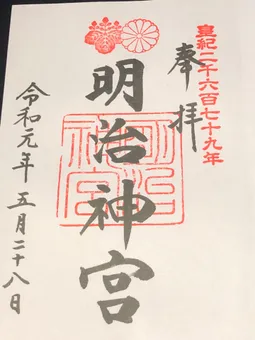 皇紀二千六百七十九年
奉拝
明治神宮
明治神宮
令和元年 五月二十八日